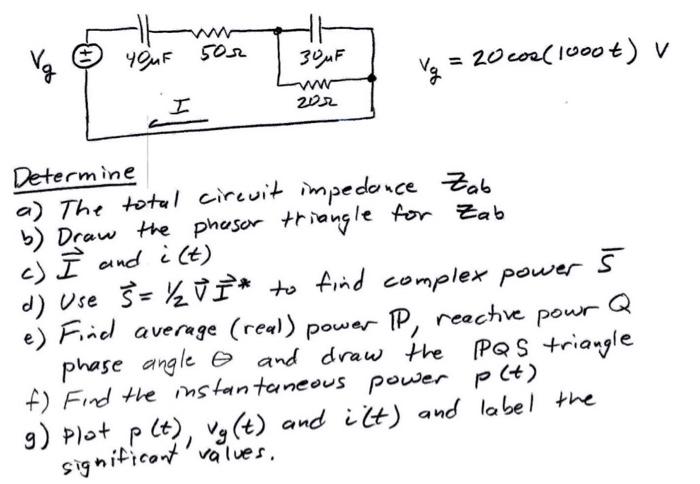 Vg 40μF 50Ω 30μF Vg = 20 cos(1000t) V
20Ω
I
Determine
a) The total circuit impedance Zab
b) Draw the phasor triangle for Zab
c) I⃗ and i(t)
d) Use S⃗ = 1/2 V⃗ I⃗* to find complex power S̄
e) Find average (real) power P, reactive powr Q
phase angle θ and draw the PQS triangle
f) Find the instantaneous power p(t)
g) Plot p(t), vg(t) and i(t) and label the
significant values.